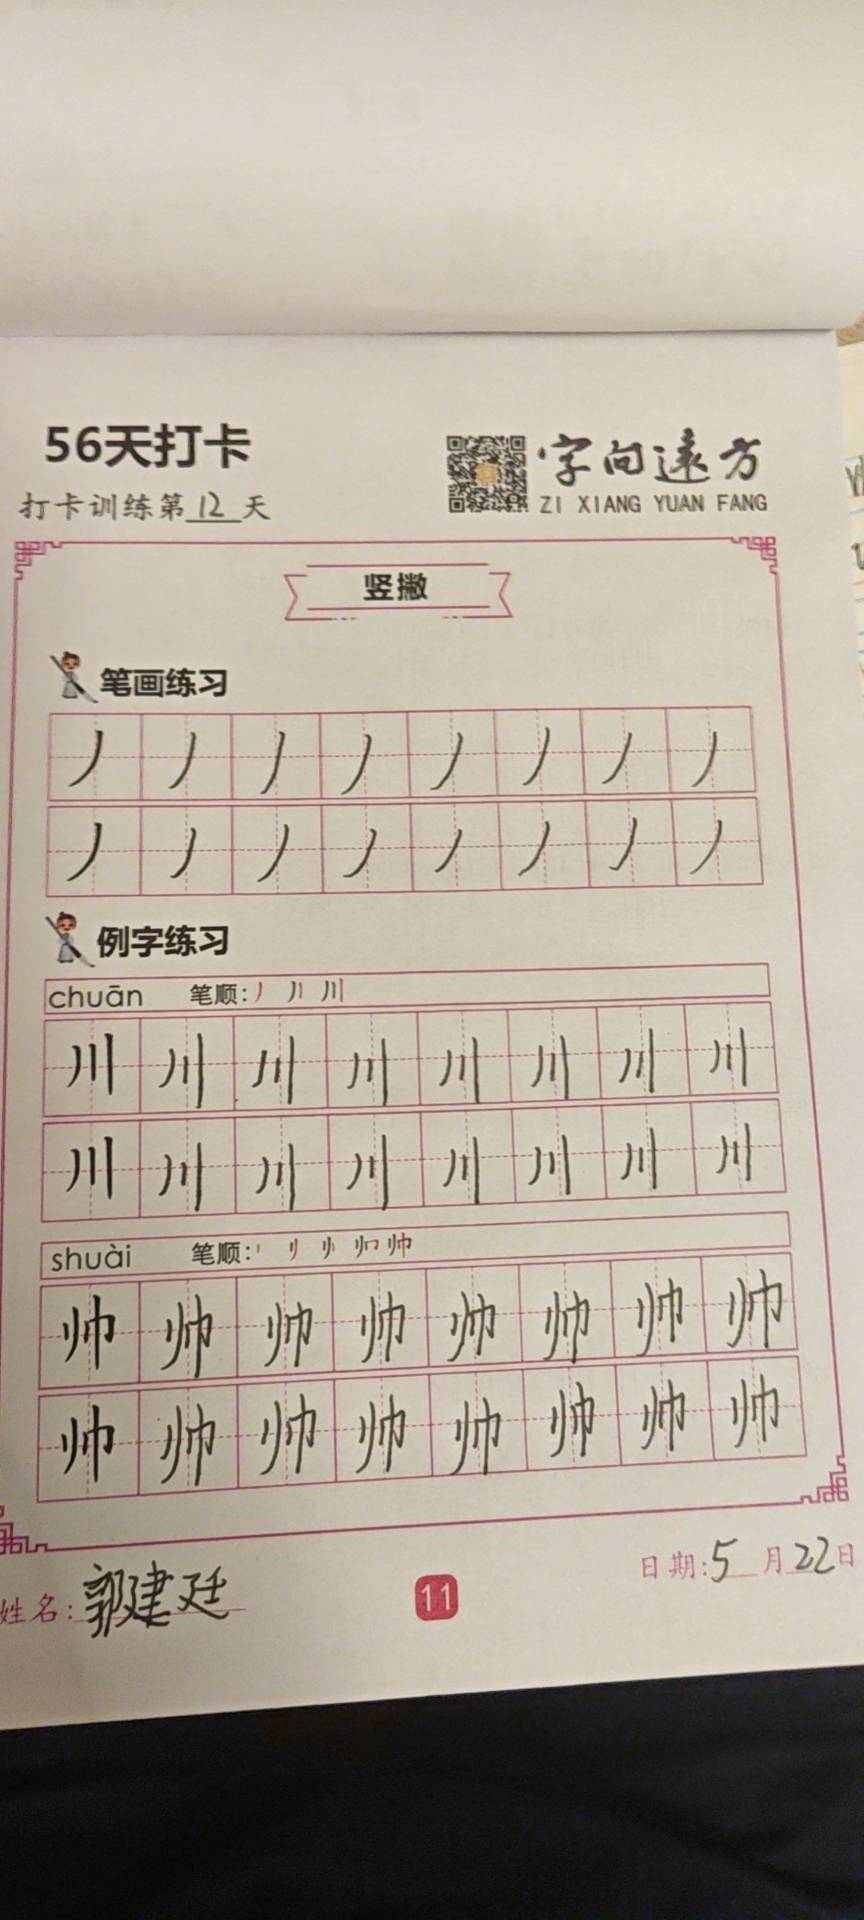 56天打卡
字向遠方
打卡训练第12天
ZI XIANG YUAN FANG
竖撇
笔画练习
丿丿丿丿丿丿丿丿
丿丿丿丿丿丿丿丿
例字练习
chuān 笔顺:丿 丿丨 川
川川川川川川川川
川川川川川川川川
shuài 笔顺: 帅
帅帅帅帅帅帅帅帅
帅帅帅帅帅帅帅帅
姓名:郭建廷
11
日期:5月22日